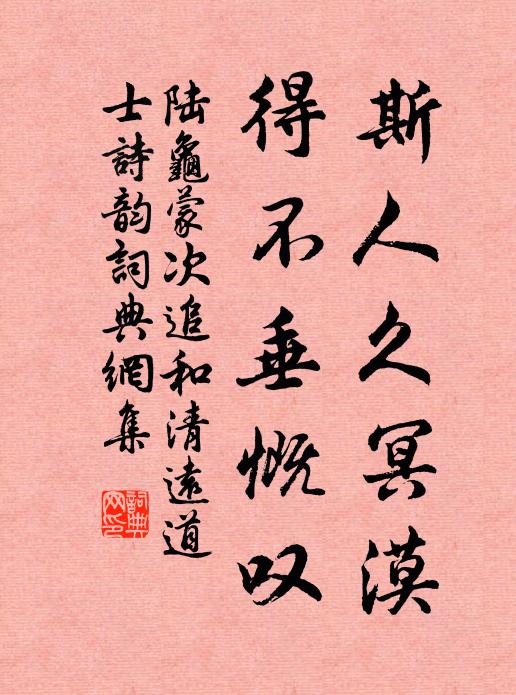 斯人久冥漠
得不垂慨叹
陆龜蒙次追和清遠道
士詩韵詞典網集
詞典
网印